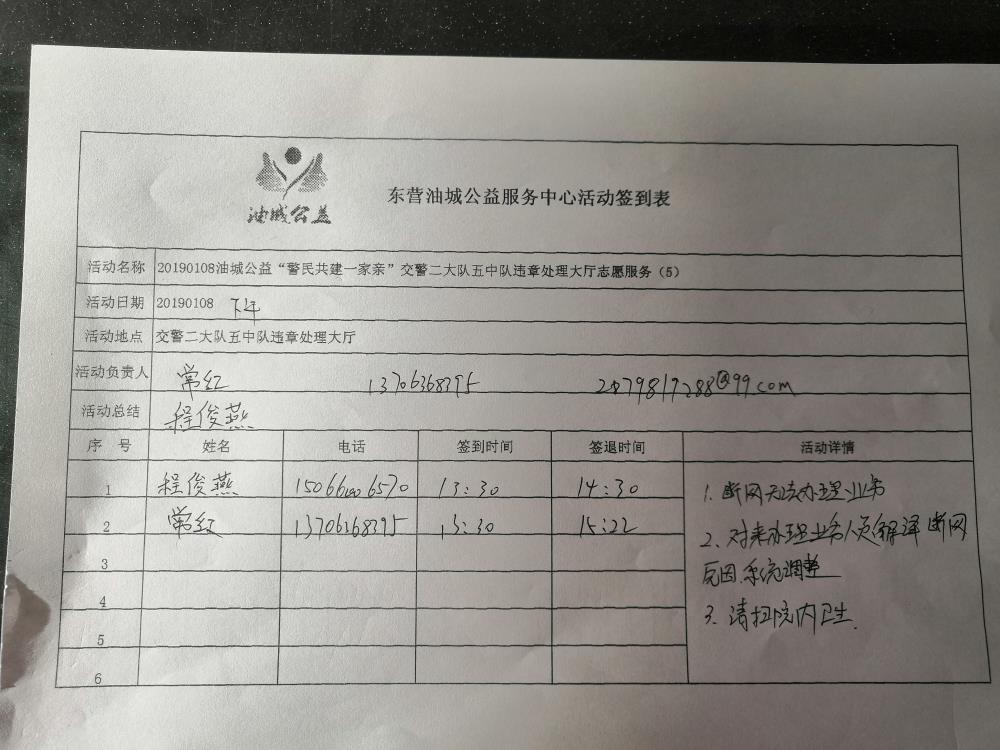 油城公益
东营油城公益服务中心活动签到表
活动名称 20190108油城公益“警民共建一家亲”交警二大队五中队违章处理大厅志愿服务（5）
活动日期 20190108 下午
活动地点 交警二大队五中队违章处理大厅
活动负责人 常红 13706368395 @99.com
活动总结 程俊燕
序 号 姓名 电话 签到时间 签退时间 活动详情
1 程俊燕 13:30 14:30
2 常红 13706368395 13:30 15:22
3
4
5
6
1. 断网无法办理业务
2、对来办理业务人员解译断网
原因.系统调整
3. 清扫院内卫生.